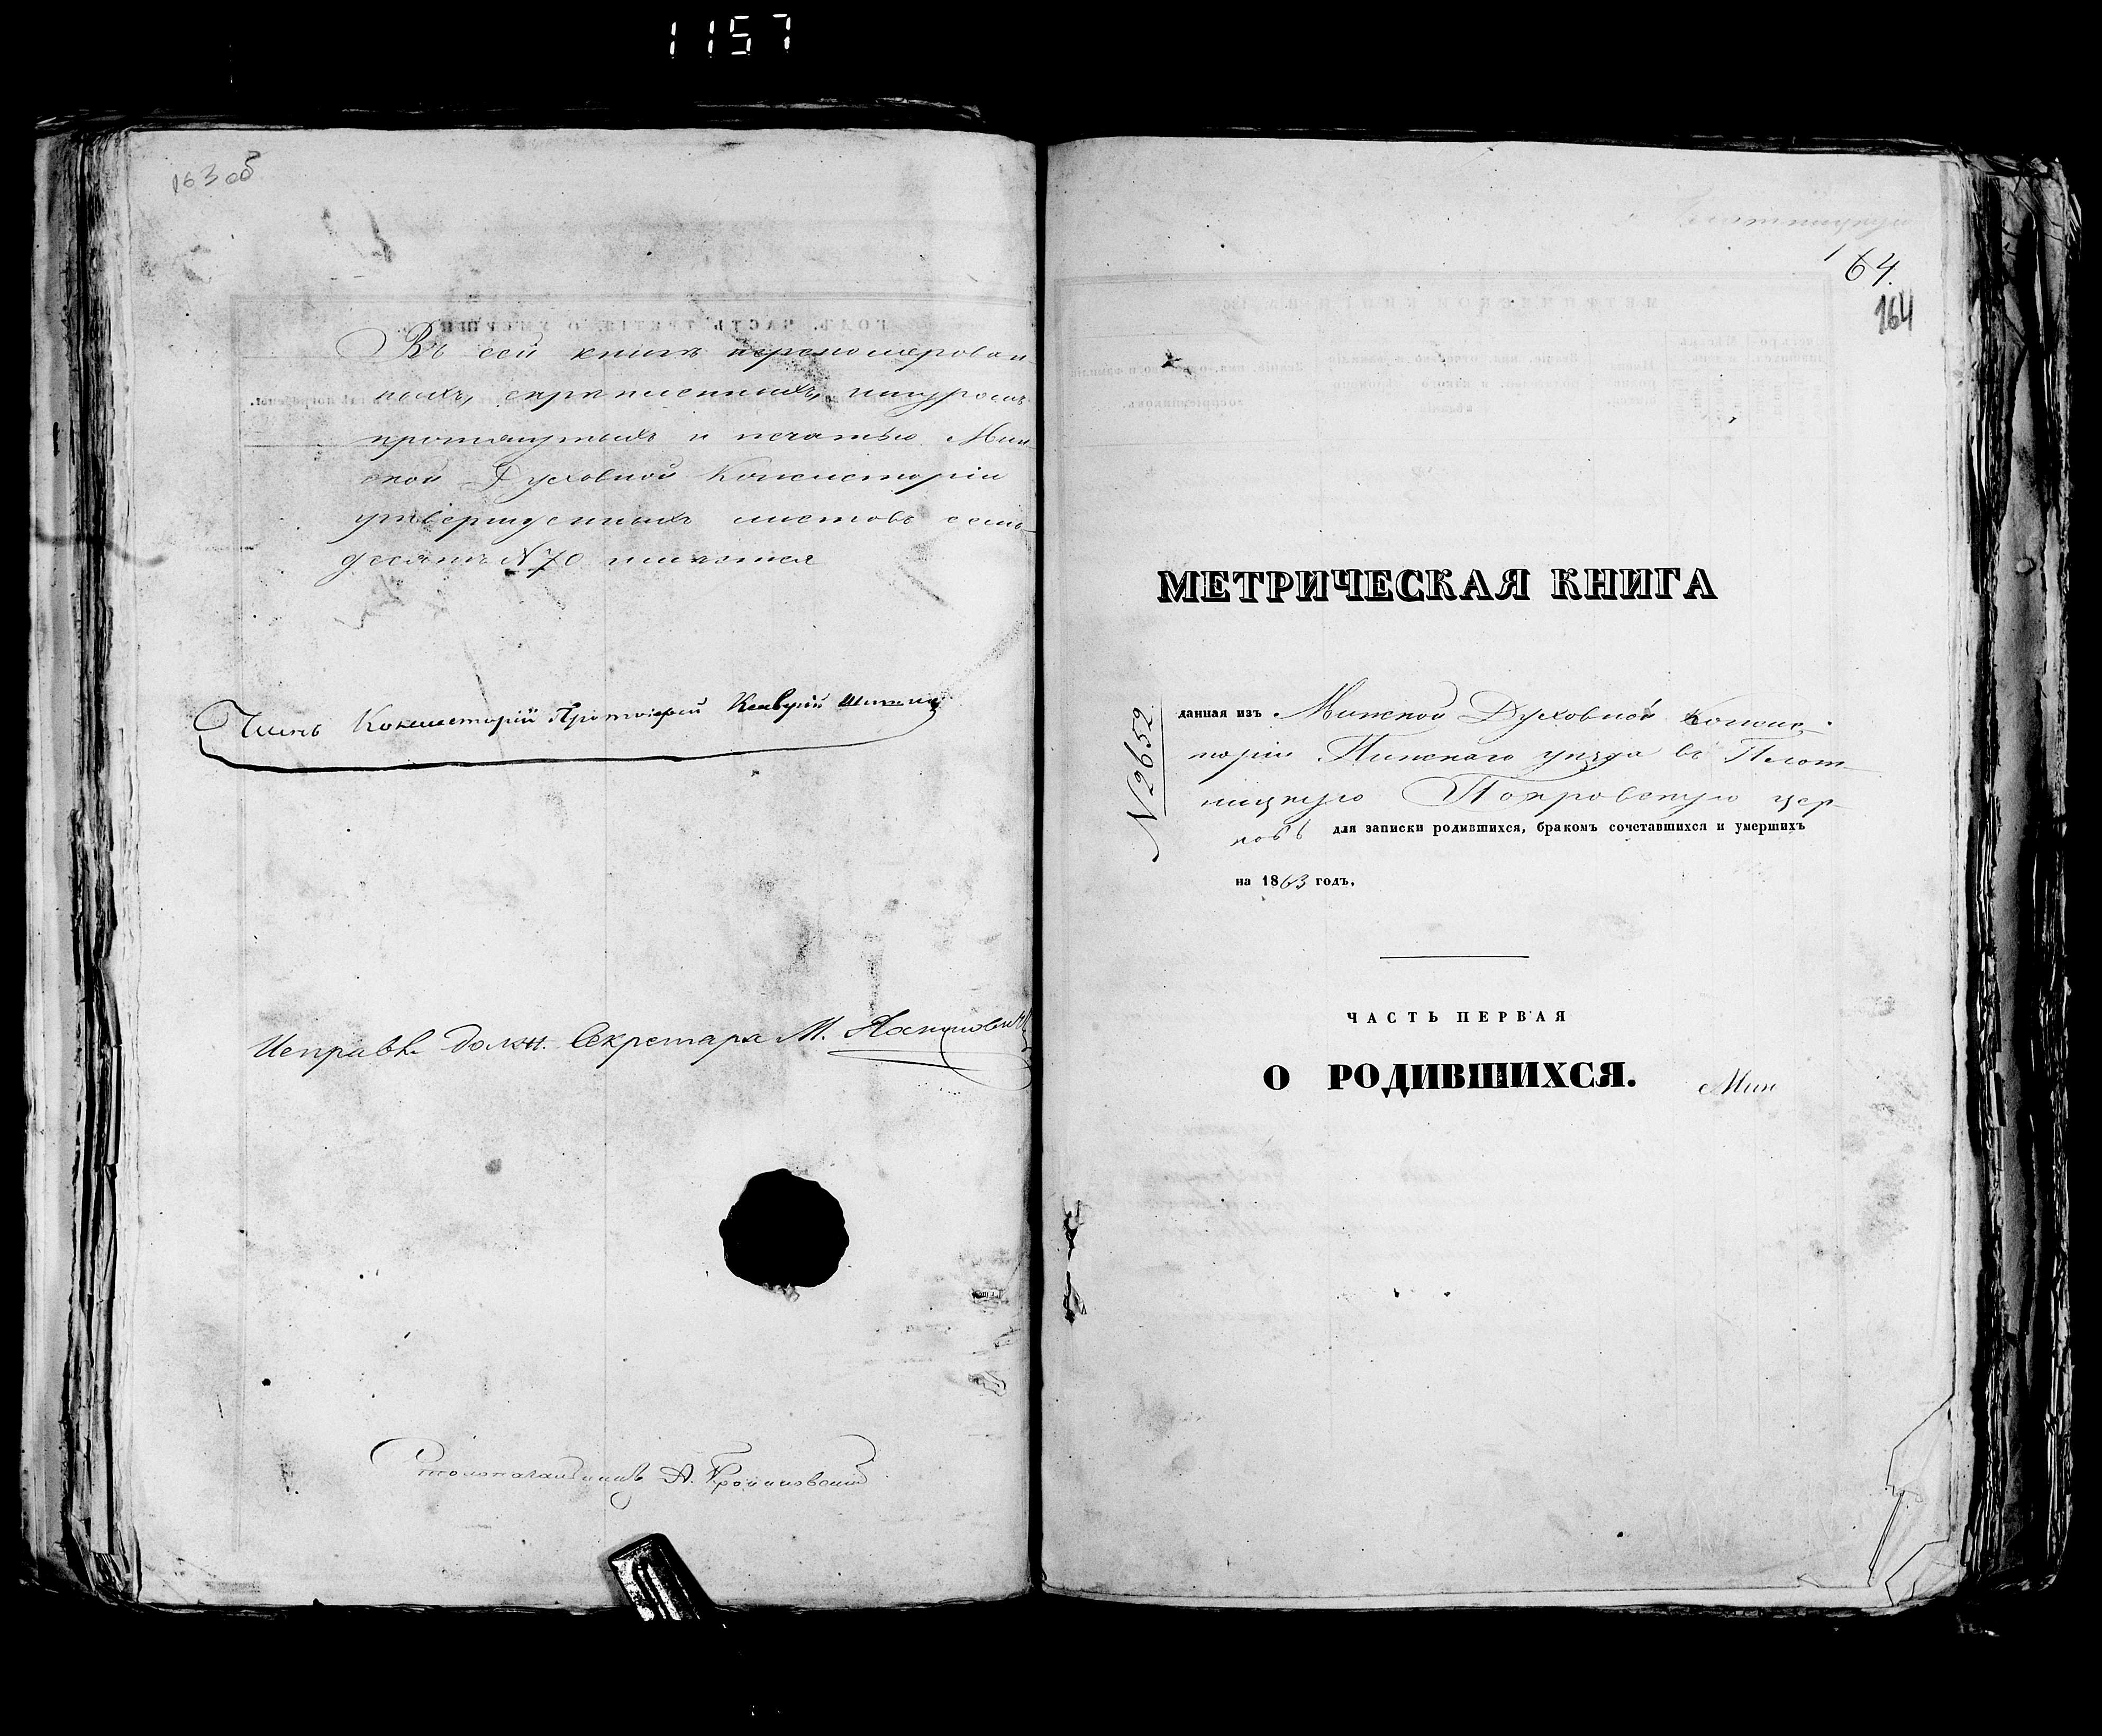 1157
163 об
Въ сей книгѣ перенумерован-
ныхъ, скрѣпленныхъ, шнуромъ
протянутыхъ и печатью Мин-
ской Духовной Консисторіи
утвержденныхъ листовъ семь-
десятъ N 70 имѣется
Членъ Консисторіи Протоіерей
Исправл. должн. Секретаря М.
Столоначальникъ А.
164.
164
МЕТРИЧЕСКАЯ КНИГА
N 2652
данная изъ Минской Духовной Консис-
торіи Пинскаго уѣзда въ Плот-
ницкую Покровскую цер-
ковь для записки родившихся, бракомъ сочетавшихся и умершихъ
на 1863 годъ.
ЧАСТЬ ПЕРВАЯ
О РОДИВШИХСЯ.
Мин